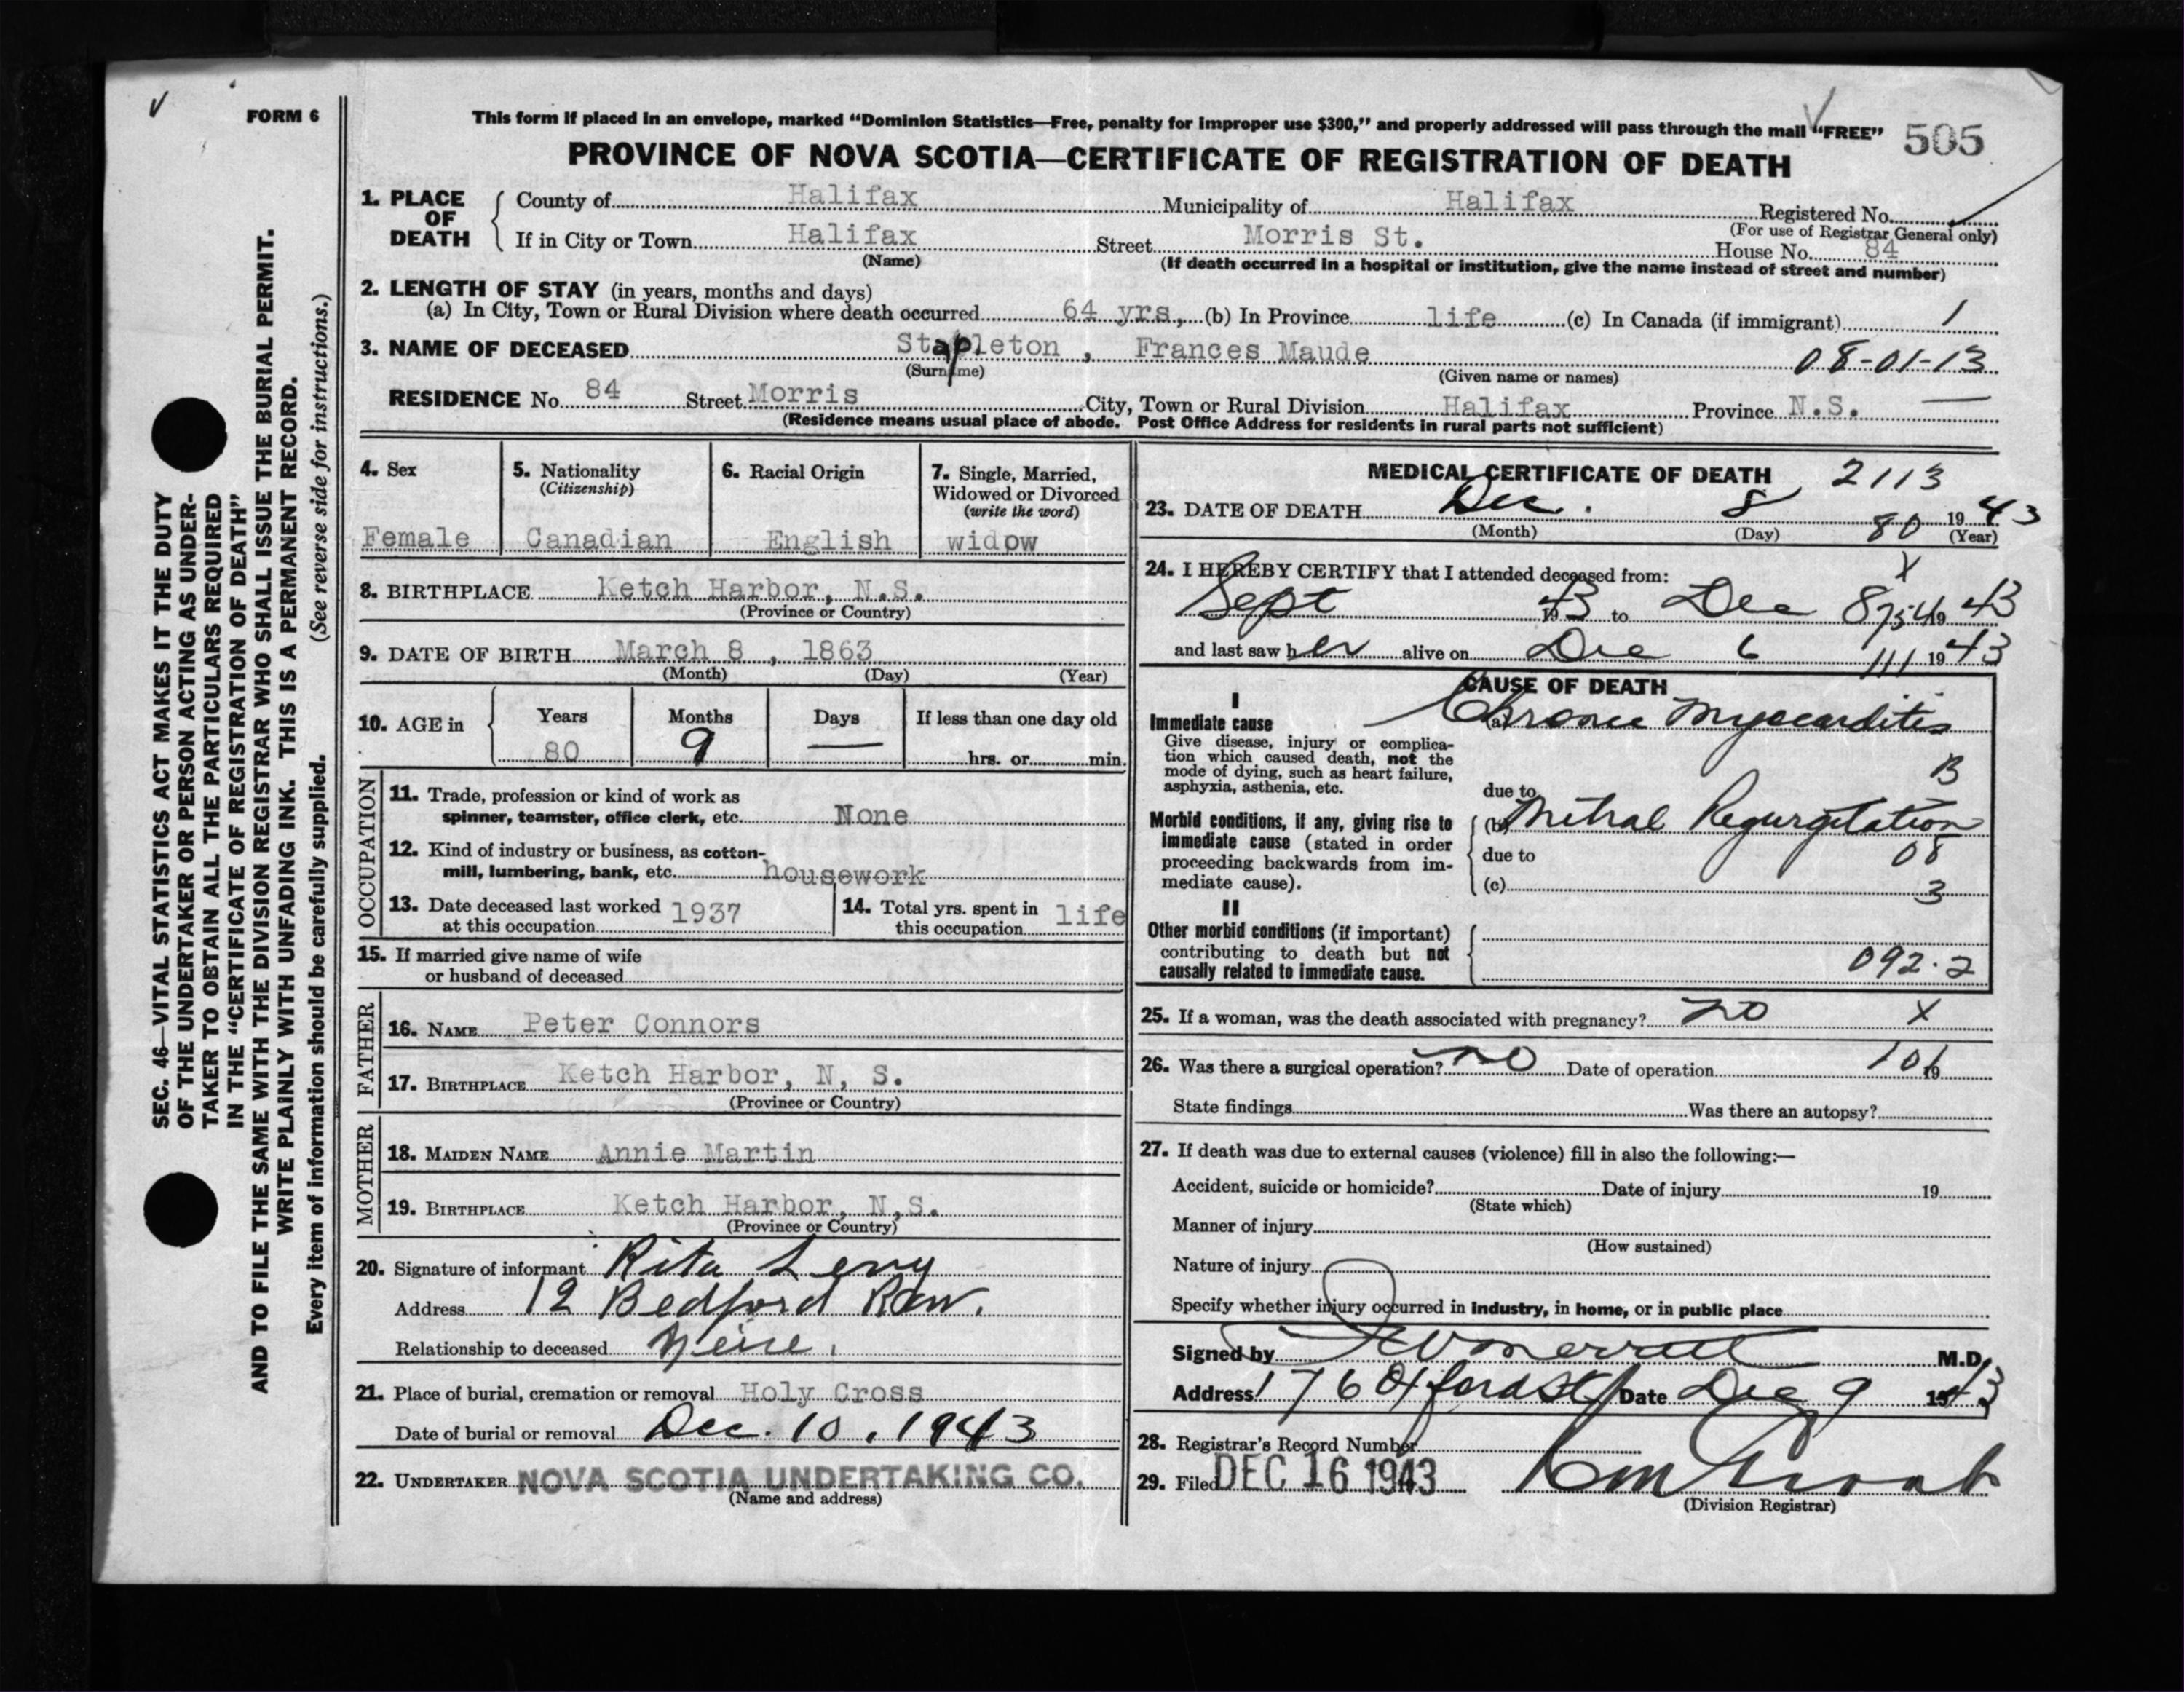 FORM 6
This form if placed in an envelope, marked "Dominion Statistics—Free, penalty for improper use $300," and properly addressed will pass through the mail "FREE"
505
PROVINCE OF NOVA SCOTIA—CERTIFICATE OF REGISTRATION OF DEATH
1. PLACE OF DEATH
County of Halifax Municipality of Halifax Registered No.
(For use of Registrar General only)
If in City or Town Halifax Street Morris St. House No. 84
(Name) (If death occurred in a hospital or institution, give the name instead of street and number)
2. LENGTH OF STAY (in years, months and days)
(a) In City, Town or Rural Division where death occurred 64 yrs, (b) In Province life (c) In Canada (if immigrant) 1
3. NAME OF DECEASED Stapleton , Frances Maude 08-01-13
(Surname) (Given name or names)
RESIDENCE No. 84 Street Morris City, Town or Rural Division Halifax Province N.S. —
(Residence means usual place of abode. Post Office Address for residents in rural parts not sufficient)
4. Sex
Female
5. Nationality
(Citizenship)
Canadian
6. Racial Origin
English
7. Single, Married,
Widowed or Divorced
(write the word)
widow
8. BIRTHPLACE Ketch Harbor, N.S.
(Province or Country)
9. DATE OF BIRTH March 8 , 1863
(Month) (Day) (Year)
10. AGE in
Years Months Days If less than one day old
80 9 — hrs. or min.
OCCUPATION
11. Trade, profession or kind of work as
spinner, teamster, office clerk, etc. None
12. Kind of industry or business, as cotton-
mill, lumbering, bank, etc. housework
13. Date deceased last worked
at this occupation 1937
14. Total yrs. spent in
this occupation life
15. If married give name of wife
or husband of deceased
FATHER
16. NAME Peter Connors
17. BIRTHPLACE Ketch Harbor, N, S.
(Province or Country)
MOTHER
18. MAIDEN NAME Annie Martin
19. BIRTHPLACE Ketch Harbor, N,S.
(Province or Country)
20. Signature of informant Rita Levy
Address 12 Bedford Row.
Relationship to deceased Neice.
21. Place of burial, cremation or removal Holy Cross
Date of burial or removal Dec. 10, 1943
22. UNDERTAKER NOVA SCOTIA UNDERTAKING CO.
(Name and address)
MEDICAL CERTIFICATE OF DEATH 2113
23. DATE OF DEATH Dec. 8 1943
(Month) (Day) 80 (Year)
24. I HEREBY CERTIFY that I attended deceased from: X
Sept 1943 to Dec 8 754 1943
and last saw her alive on Dec 6 111 1943
CAUSE OF DEATH
I
Immediate cause
Give disease, injury or complica-
tion which caused death, not the
mode of dying, such as heart failure,
asphyxia, asthenia, etc.
(a) Chronic Myocarditis
B
due to
Morbid conditions, if any, giving rise to
immediate cause (stated in order
proceeding backwards from im-
mediate cause).
(b) Mitral Regurgitation
due to 08
(c) 3
II
Other morbid conditions (if important)
contributing to death but not
causally related to immediate cause.
092.2
25. If a woman, was the death associated with pregnancy? no X
26. Was there a surgical operation? no Date of operation 101 19
State findings Was there an autopsy?
27. If death was due to external causes (violence) fill in also the following:—
Accident, suicide or homicide? Date of injury 19
(State which)
Manner of injury
(How sustained)
Nature of injury
Specify whether injury occurred in industry, in home, or in public place
Signed by M.D.
Address 176 Oxford St Date Dec 9 1943
28. Registrar's Record Number
29. Filed DEC 16 1943
(Division Registrar)
SEC. 46—VITAL STATISTICS ACT MAKES IT THE DUTY
OF THE UNDERTAKER OR PERSON ACTING AS UNDER-
TAKER TO OBTAIN ALL THE PARTICULARS REQUIRED
IN THE "CERTIFICATE OF REGISTRATION OF DEATH"
AND TO FILE THE SAME WITH THE DIVISION REGISTRAR WHO SHALL ISSUE THE BURIAL PERMIT.
WRITE PLAINLY WITH UNFADING INK. THIS IS A PERMANENT RECORD.
Every item of information should be carefully supplied. (See reverse side for instructions.)